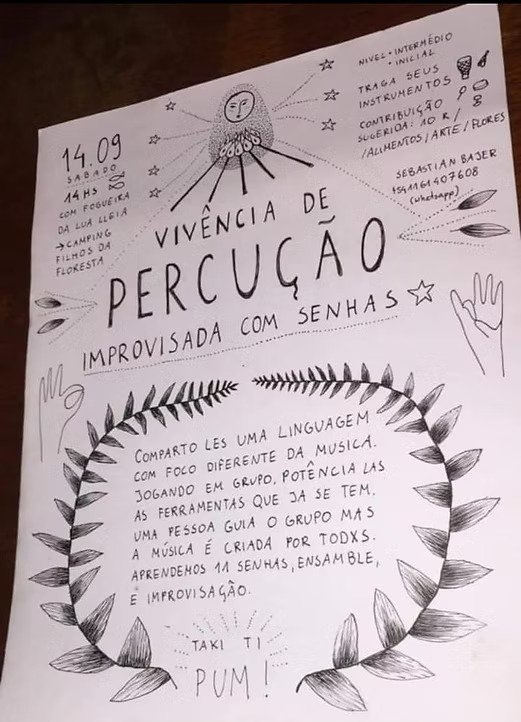 14.09
SABADO
14HS
COM FOGUEIRA
DA LUA LLEIA
→CAMPING
FILHOS DA
FLORESTA
NIVEL • INTERMÉDIO
• INICIAL
TRAGA SEUS
INSTRUMENTOS
CONTRIBUIÇÃO
SUGERIDA: 10 R /
/ALIMENTOS/ARTE/FLORES
SEBASTIAN BAJER
+5491161407608
(whatsapp)
VIVÊNCIA DE
PERCUÇÃO
IMPROVISADA COM SENHAS
COMPARTO LES UMA LINGUAGEM
COM FOCO DIFERENTE DA MUSICA.
JOGANDO EM GRUPO, POTÊNCIA LAS
AS FERRAMENTAS QUE JA SE TEM.
UMA PESSOA GUIA O GRUPO MAS
A MÚSICA É CRIADA POR TODXS.
APRENDEMOS 11 SENHAS, ENSAMBLE,
E IMPROVISAÇÃO.
TAKI TI
PUM!